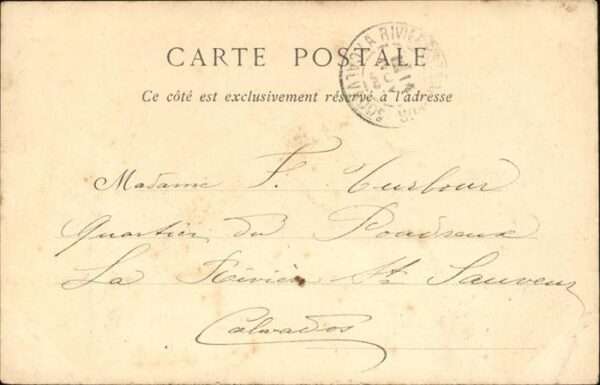 CARTE POSTALE
Ce côté est exclusivement réservé à l'adresse
LA RIVIÈRE
Madame F. Turbour
Quartier du Poudreux
La Rivière St Sauveur
Calvados